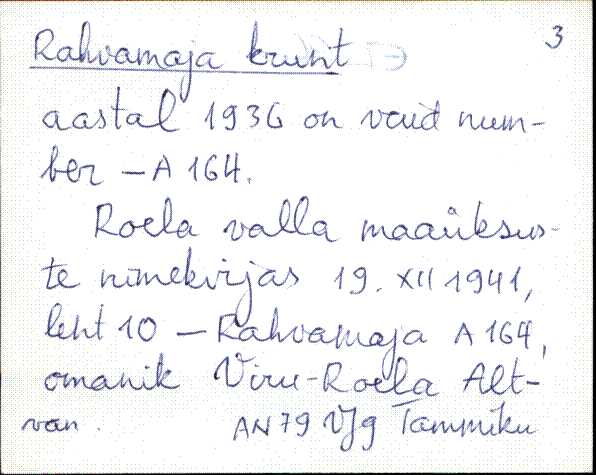 3
Rahvamaja krunt
aastal 1936 on vaid num-
ber - A 164.
Roela valla maaüksus-
te nimekirjas 19. XII 1941,
leht 10 - Rahvamaja A 164,
omanik Viru-Roela Alt-
van.
AN 79 VJg Tammiku